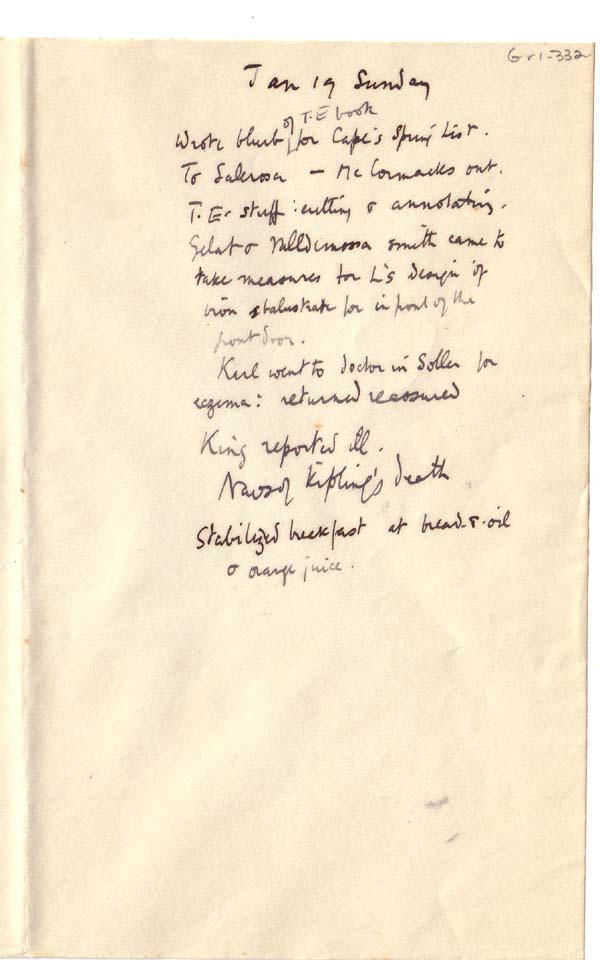 Gr1-332
Jan 19 Sunday
of T.E book
Wrote blurb for Cape's Spring List.
To Salerosa — McCormacks out.
T.E. stuff: cutting & annotating.
Gelat & Valldemossa smith came to
take measures for L's design of
iron balustrade for in front of the
front door.
Karl went to doctor in Soller for
eczema: returned reassured
King reported ill.
News of Kipling's death
Stabilized breakfast at bread-&-oil
& orange juice.